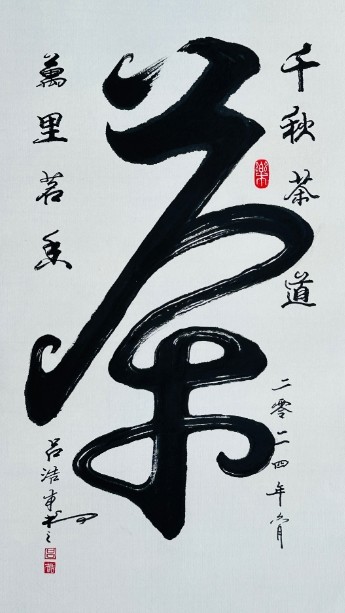 千秋茶道
茶
萬里茗香
二零二四年
呂浩